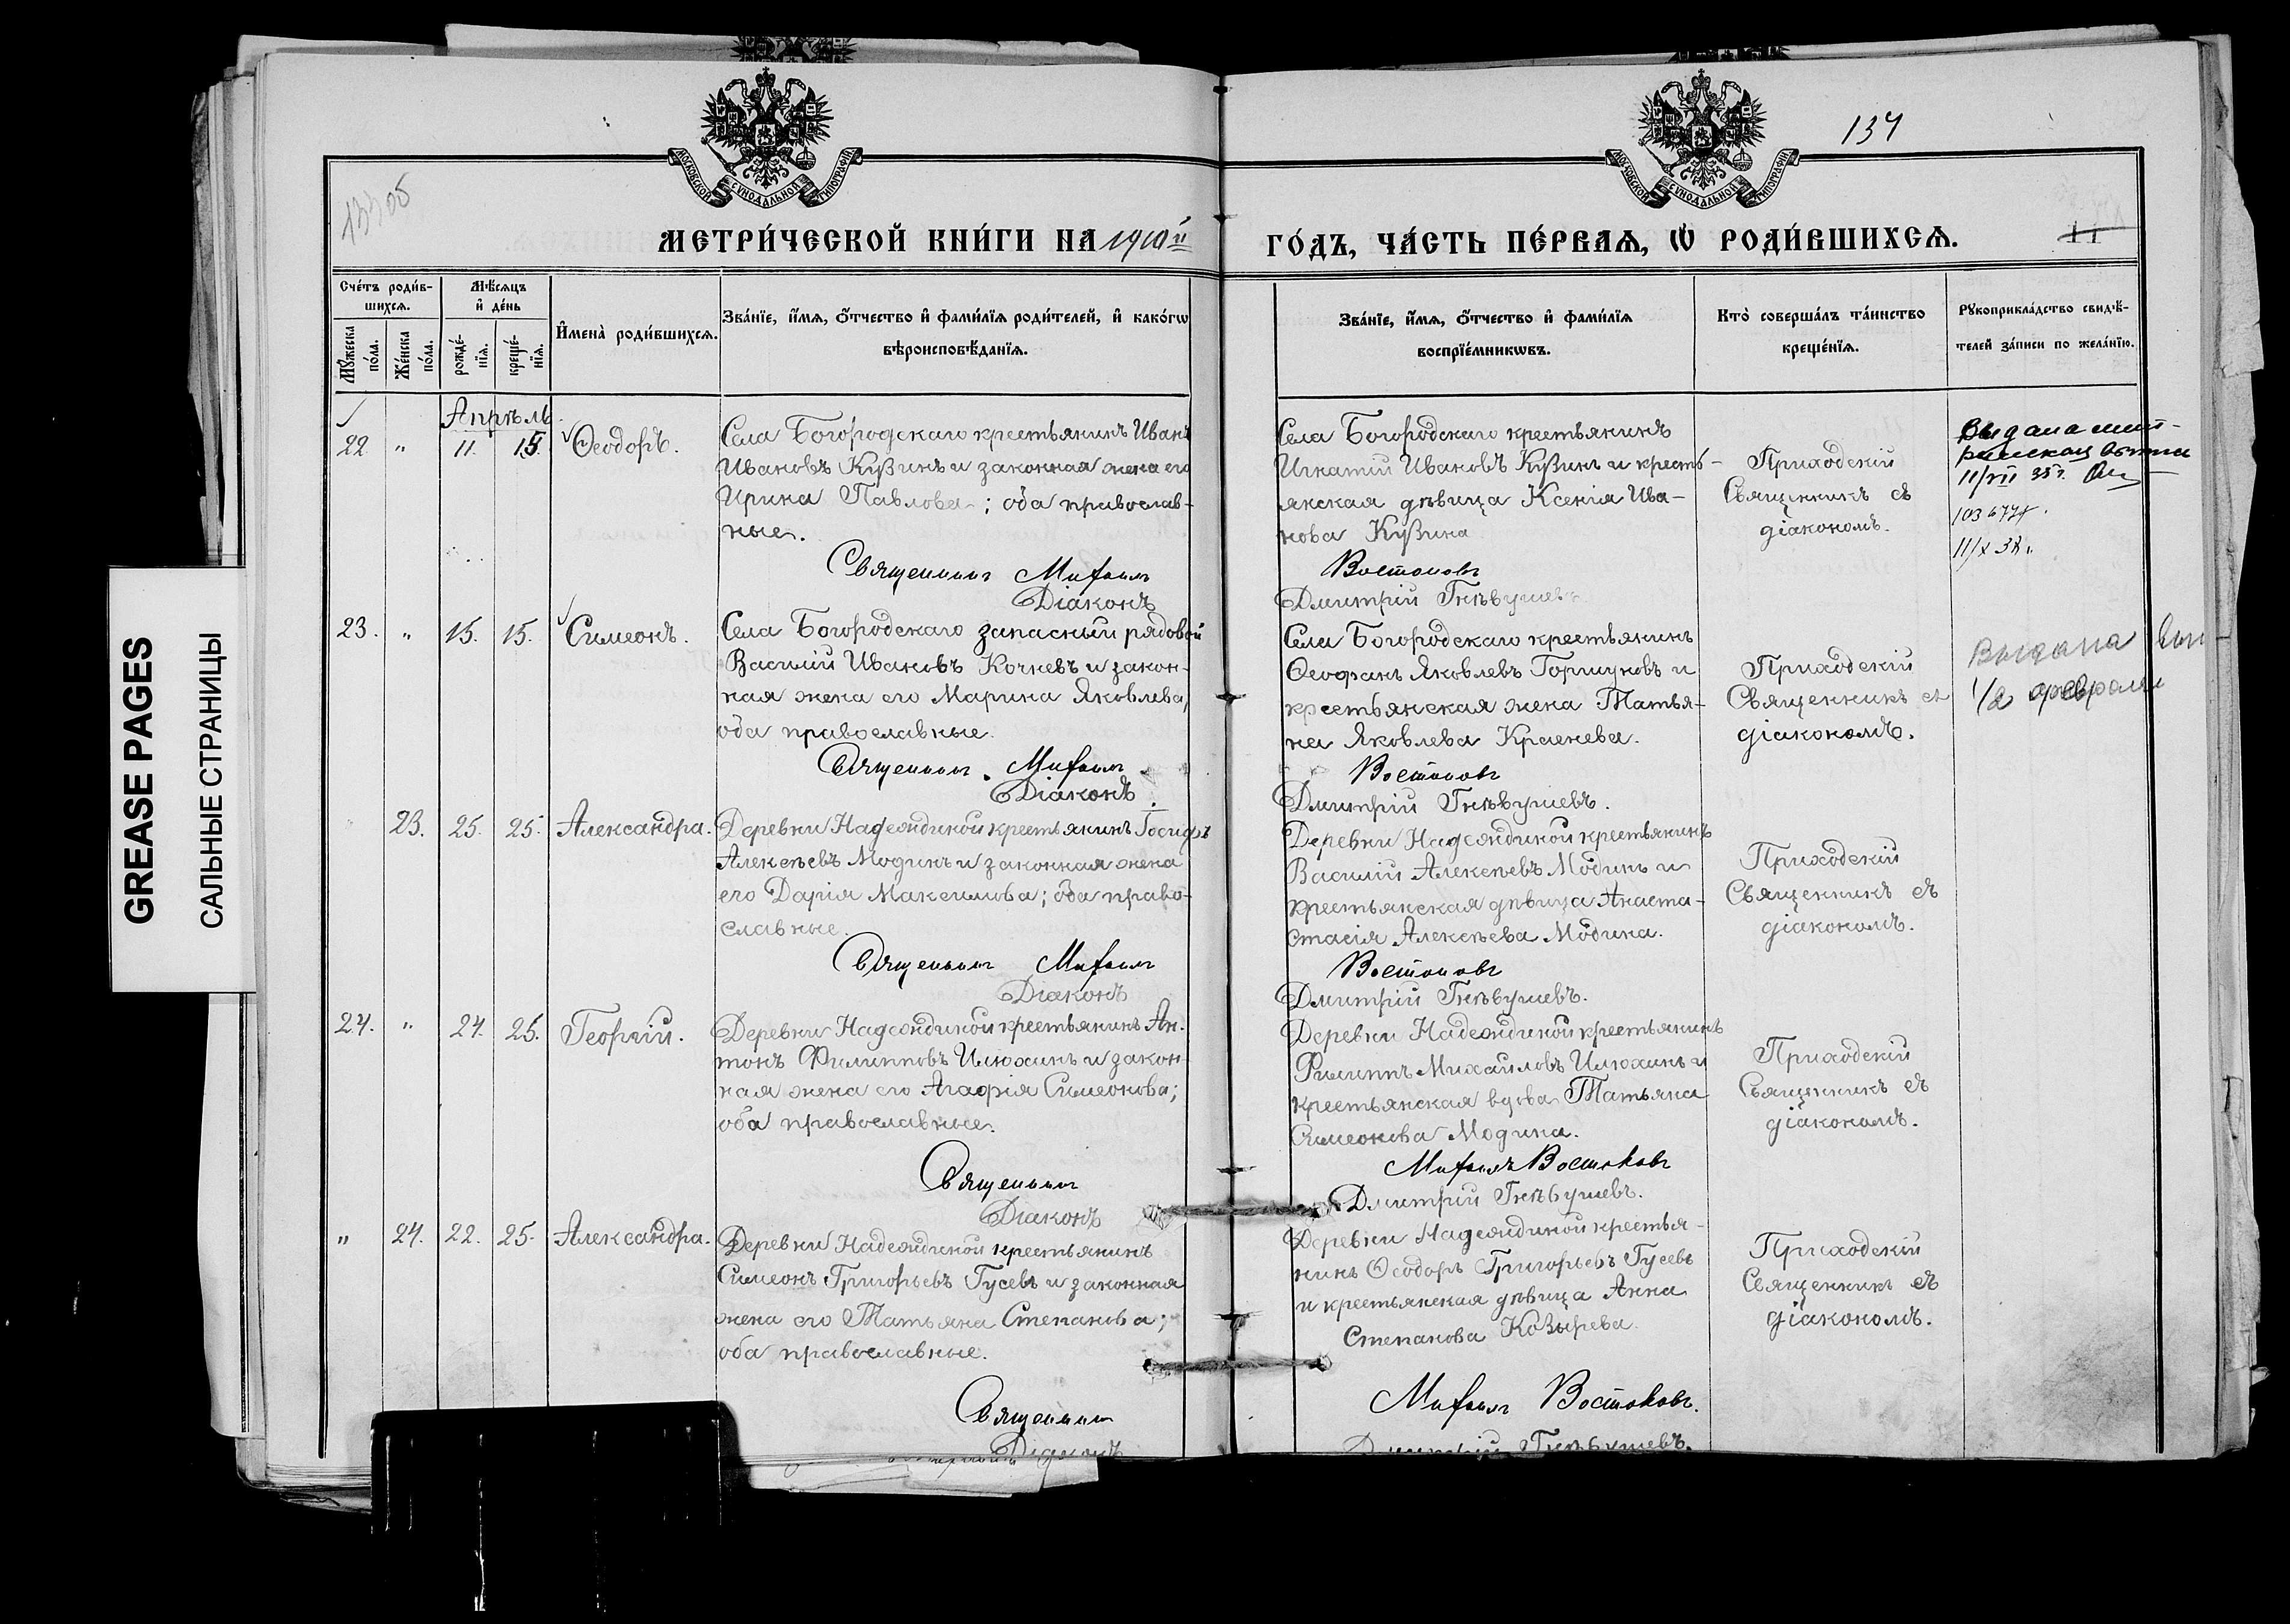 МОСКОВСКОЙ СѴНОДАЛЬНОЙ ТИПОГРАФІИ
МОСКОВСКОЙ СѴНОДАЛЬНОЙ ТИПОГРАФІИ
134
13305
МЕТРИ́ЧЕСКОЙ КНИ́ГИ НА 1910й
ГО́ДЪ, ЧА́СТЬ ПЕ́РВАѦ, Ѡ РОДИ́ВШИХСѦ.
11
Сче́тъ роди́в-
шихсѧ.
Мꙋ́жеска
по́ла.
Же́нска
по́ла.
Мѣ́сѧцъ
и҆ де́нь
рожде́-
нїѧ.
креще́-
нїѧ.
И҆мена̀ роди́вшихсѧ.
Зва́нїе, и҆́мѧ, ѻ҆́тчество и҆ фами́лїѧ роди́телей, и҆ како́гѡ
вѣроисповѣ́данїѧ.
Зва́нїе, и҆́мѧ, ѻ҆́тчество и҆ фами́лїѧ
воспрїе́мникѡвъ.
Кто̀ соверша́лъ та́инство
креще́нїѧ.
Рꙋкоприкла́дство свидѣ́-
телей за́писи по жела́нїю.
Апрѣль.
22 " 11. 15. Ѳеодоръ.
Села Богородскаго крестьянинъ Иванъ
Ивановъ Кузинъ и законная жена его
Ирина Павлова; оба православ-
ные.
Священникъ Михаилъ
Діаконъ
Села Богородскаго крестьянинъ
Игнатій Ивановъ Кузинъ и кресть-
янская дѣвица Ксенія Ива-
нова Кузина
Востоковъ
Дмитрій Гнѣвушевъ
Приходскій
Священникъ съ
діакономъ.
Выдана
11/VII 35г.
11/X 38г.
23. " 15. 15. Симеонъ.
Села Богородскаго запасный рядовой
Василій Ивановъ Кочневъ и закон-
ная жена его Марина Яковлева,
оба православные.
Священникъ Михаилъ
Діаконъ
Села Богородскаго крестьянинъ
Ѳеофанъ Яковлевъ Горшуновъ и
крестьянская жена Татья-
на Яковлева Краснева.
Востоковъ
Дмитрій Гнѣвушевъ.
Приходскій
Священникъ съ
діакономъ.
Выдана вып
февраля
23. 25. 25. Александра.
Деревни Надеждиной крестьянинъ Іосифъ
Алексѣевъ Модинъ и законная жена
его Дарія Максимова; оба право-
славные.
Священникъ Михаилъ
Діаконъ
Деревни Надеждиной крестьянинъ
Василій Алексѣевъ Модинъ и
крестьянская дѣвица Анаста-
стасія Алексѣева Модина.
Востоковъ
Дмитрій Гнѣвушевъ.
Приходскій
Священникъ съ
діакономъ.
24. " 24. 25. Георгій.
Деревни Надеждиной крестьянинъ Ан-
тонъ Филипповъ Илюхинъ и закон-
ная жена его Агафія Симеонова;
оба православные.
Священникъ
Діаконъ
Деревни Надеждиной крестьянинъ
Филиппъ Михайловъ Илюхинъ и
крестьянская вдова Татьяна
Симеонова Модина.
Михаилъ Востоковъ
Дмитрій Гнѣвушевъ.
Приходскій
Священникъ съ
діакономъ.
" 24. 22. 25. Александра.
Деревни Надеждиной крестьянинъ
Симеонъ Григорьевъ Гусевъ и законная
жена его Татьяна Степанова;
оба православные.
Священникъ
Діаконъ
Деревни Надеждиной крестья-
нинъ Ѳеодоръ Григорьевъ Гусевъ
и крестьянская дѣвица Анна
Степанова Козырева.
Михаилъ Востоковъ.
Дмитрій Гнѣвушевъ.
Приходскій
Священникъ съ
діакономъ.
GREASE PAGES
САЛЬНЫЕ СТРАНИЦЫ